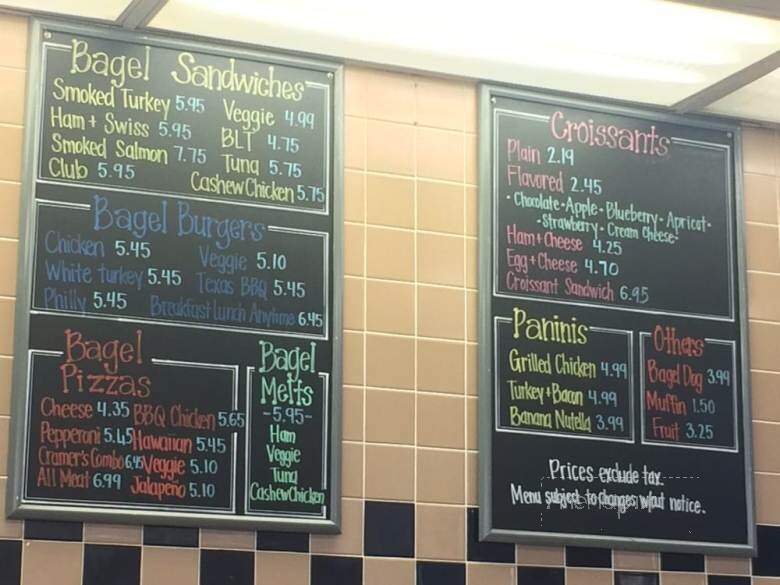 Bagel Sandwiches
Smoked Turkey 5.95
Ham + Swiss 5.95
Smoked Salmon 7.75
Club 5.95
Veggie 4.99
BLT 4.75
Tuna 5.75
Cashew Chicken 5.75
Bagel Burgers
Chicken 5.45
White turkey 5.45
Philly 5.45
Veggie 5.10
Texas BBQ 5.45
Breakfast Lunch Anytime 6.45
Bagel
Pizzas
Cheese 4.35
Pepperoni 5.45
Cramer's Combo 6.45
All Meat 6.99
BBQ Chicken 5.65
Hawaiian 5.45
Veggie 5.10
Jalapeño 5.10
Bagel
Melts
-5.95-
Ham
Veggie
Tuna
Cashew Chicken
Croissants
Plain 2.19
Flavored 2.45
• Chocolate • Apple • Blueberry • Apricot •
• Strawberry • Cream Cheese •
Ham + Cheese 4.25
Egg + Cheese 4.70
Croissant Sandwich 6.95
Paninis
Grilled Chicken 4.99
Turkey + Bacon 4.99
Banana Nutella 3.99
Others
Bagel Dog 3.99
Muffin 1.50
Fruit 3.25
Prices exclude tax.
Menu subject to changes w/out notice.